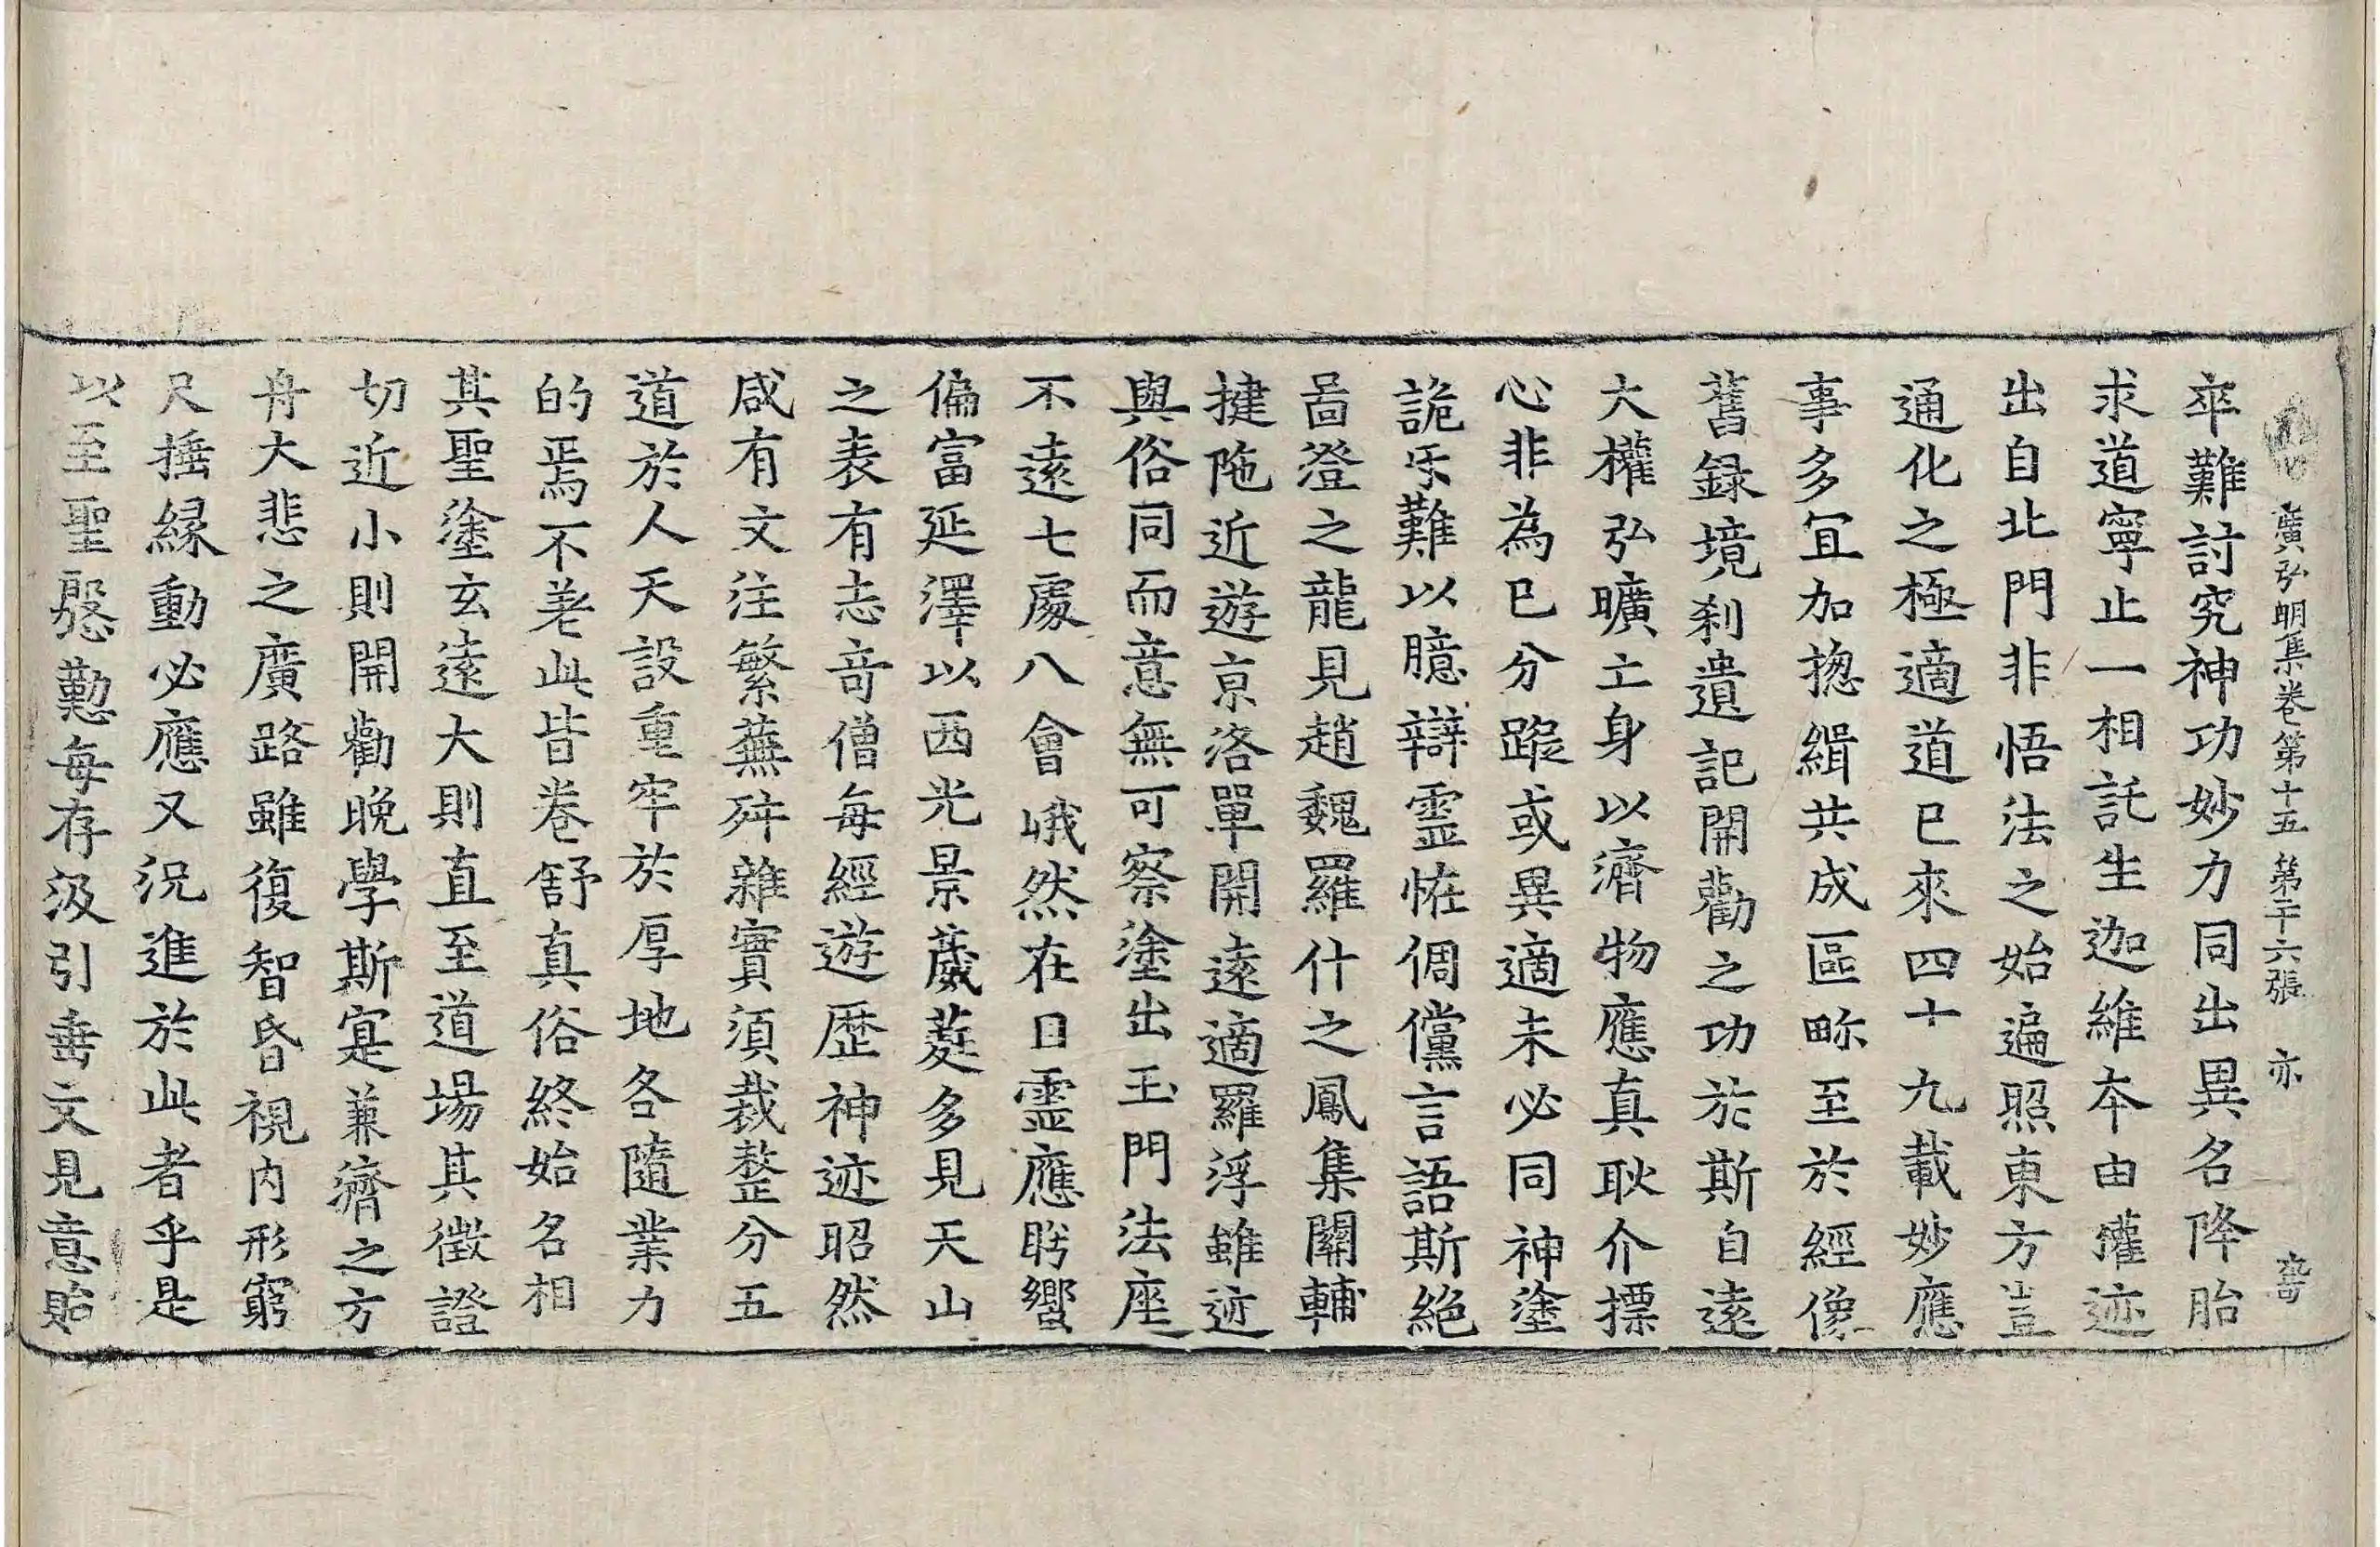 廣弘明集卷第十五 第二十六張 亦
卒難討究神功妙力同出異名降胎
求道寧止一相託生迦維本由權迹
出自北門非悟法之始遍照東方豈
通化之極適道已來四十九載妙應
事多冝加揔緝共成區畛至於經像
舊録境刹遺記開勸之功於斯自遠
大權弘曠亡身以濟物應真耿介摽
心非為已分蹤或異適未必同神塗
詭㸦難以臆辯靈怪倜儻言語斯絕
啚澄之龍見趙魏羅什之鳳集關輔
揵陁近遊京洛單開遠適羅浮雖迹
與俗同而意無可察塗出玉門法座
不遠七處八會峨然在目靈應肹蠁
偏富延澤以西光景葳蕤多見天山
之表有志竒僧每經遊歷神迹昭然
咸有文注繁蕪舛雜實須裁整分五
道於人天設重牢於厚地各隨業力
的焉不差此皆卷舒真俗終始名相
其聖塗玄遠大則直至道場其徵證
切近小則開勸晚學斯寔兼濟之方
舟大悲之廣路雖復智昏視內形窮
尺捶緣動必應又況進於此者乎是
以至聖慇懃每存汲引垂文見意貽